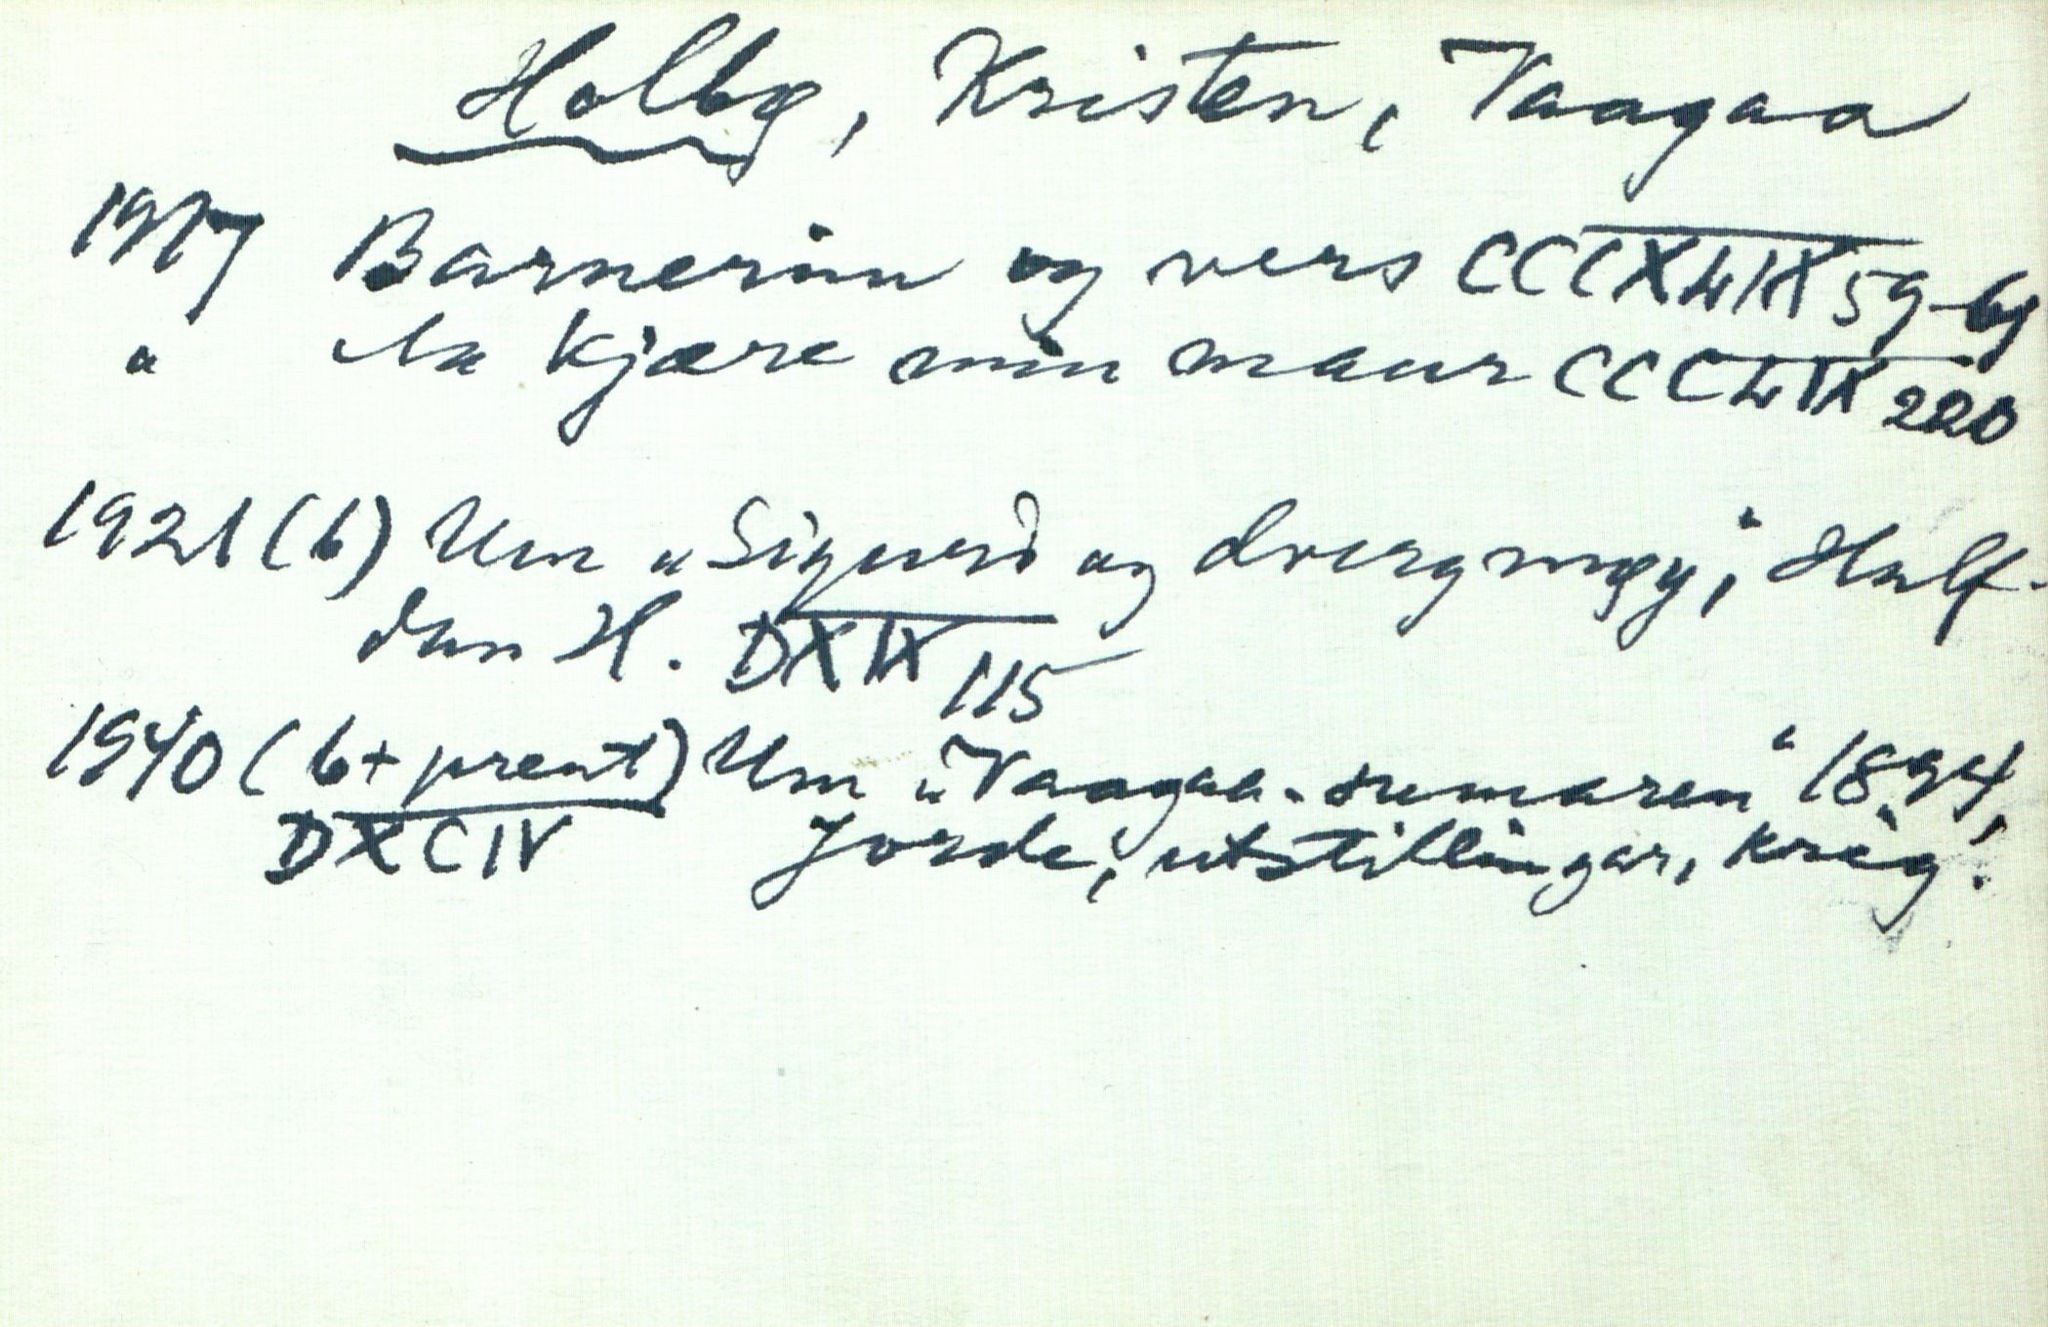 Holbø, Kristen, Vaagaa
1917 Barnerim og vers CCCXLIX 59-61
" Aa kjære min maur CCCLIX 220
1921 (b) Um "Sigurd og dvergmøy", Half-
dan H. DXIX 115
1940 (b + prent) Um "Vaagaa-sumaren" 1894,
DXCIV Jorde, utstillingar, krig.